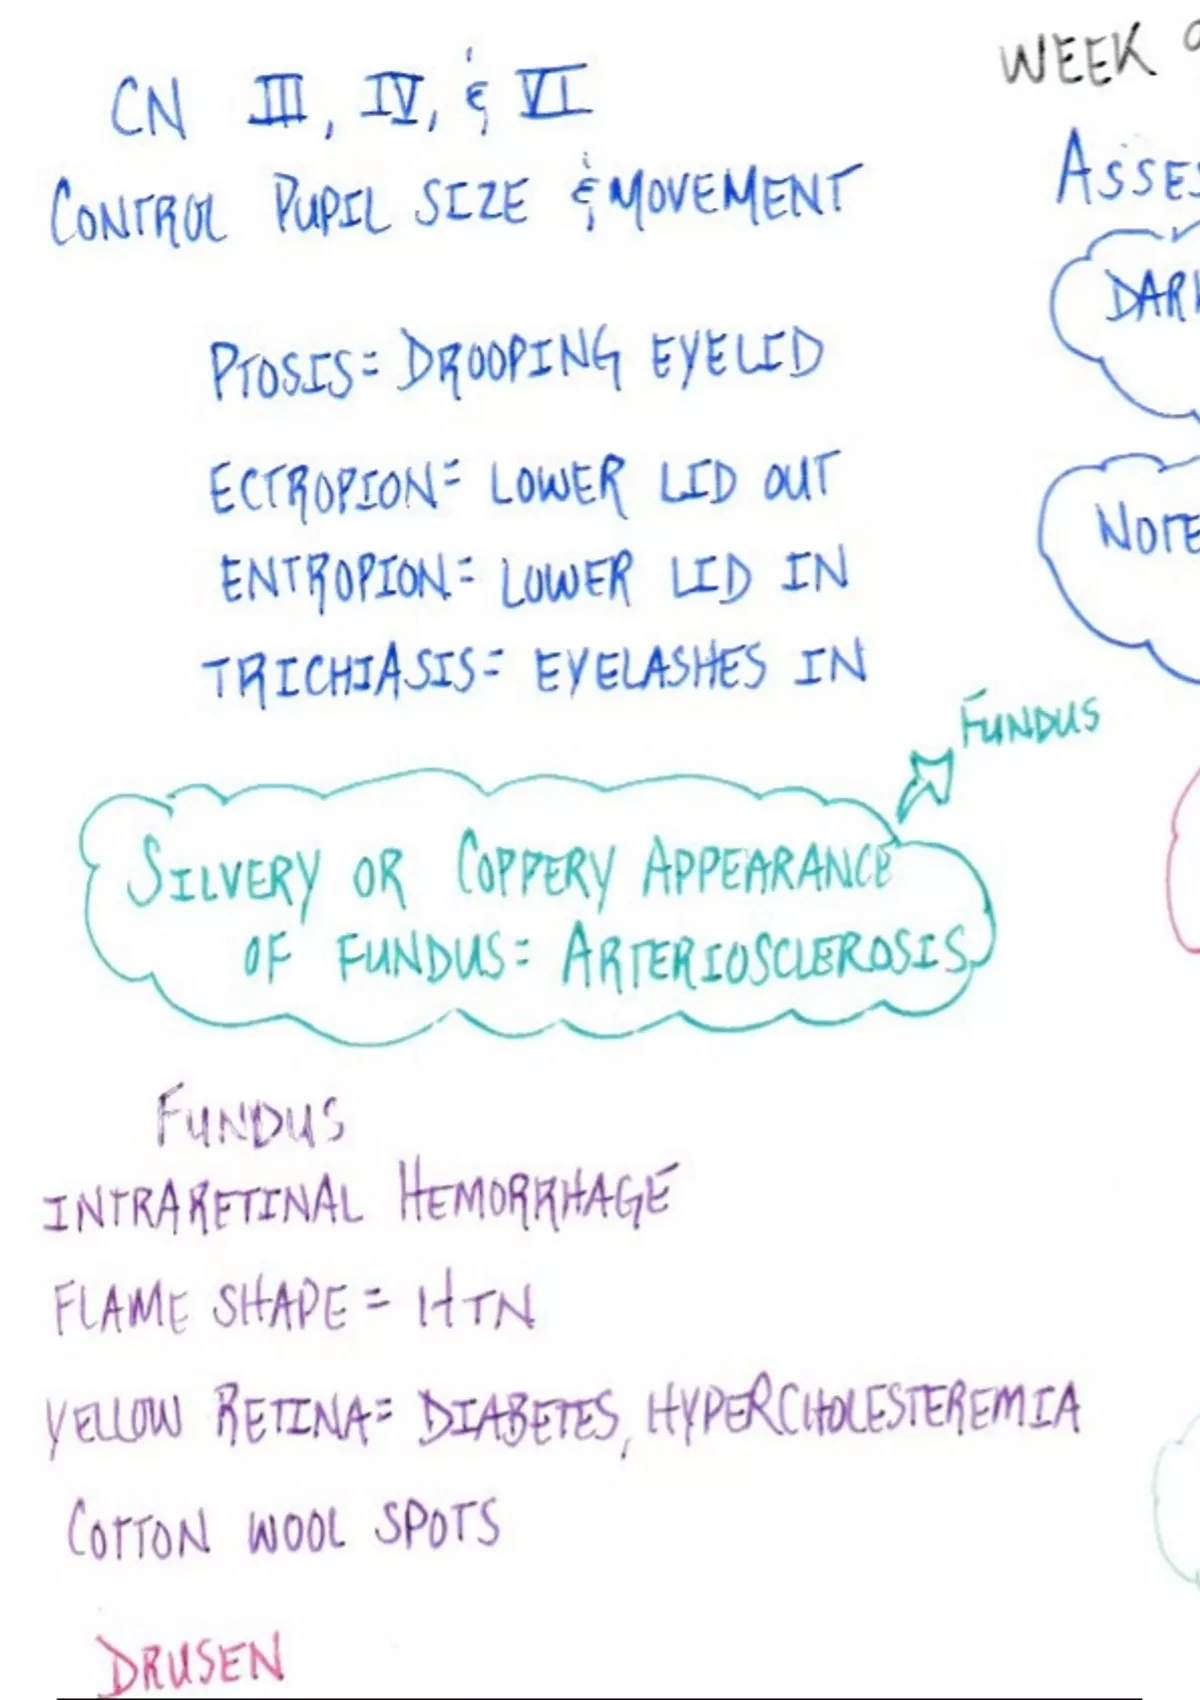 WEEK
CN III, IV, & VI
CONTROL PUPIL SIZE & MOVEMENT
PTOSIS = DROOPING EYELID
ECTROPION = LOWER LID OUT
ENTROPION = LOWER LID IN
TRICHIASIS = EYELASHES IN
FUNDUS
SILVERY OR COPPERY APPEARANCE
OF FUNDUS = ARTERIOSCLEROSIS
FUNDUS
INTRARETINAL HEMORRHAGE
FLAME SHAPE = HTN
YELLOW RETINA = DIABETES, HYPERCHOLESTEREMIA
COTTON WOOL SPOTS
DRUSEN